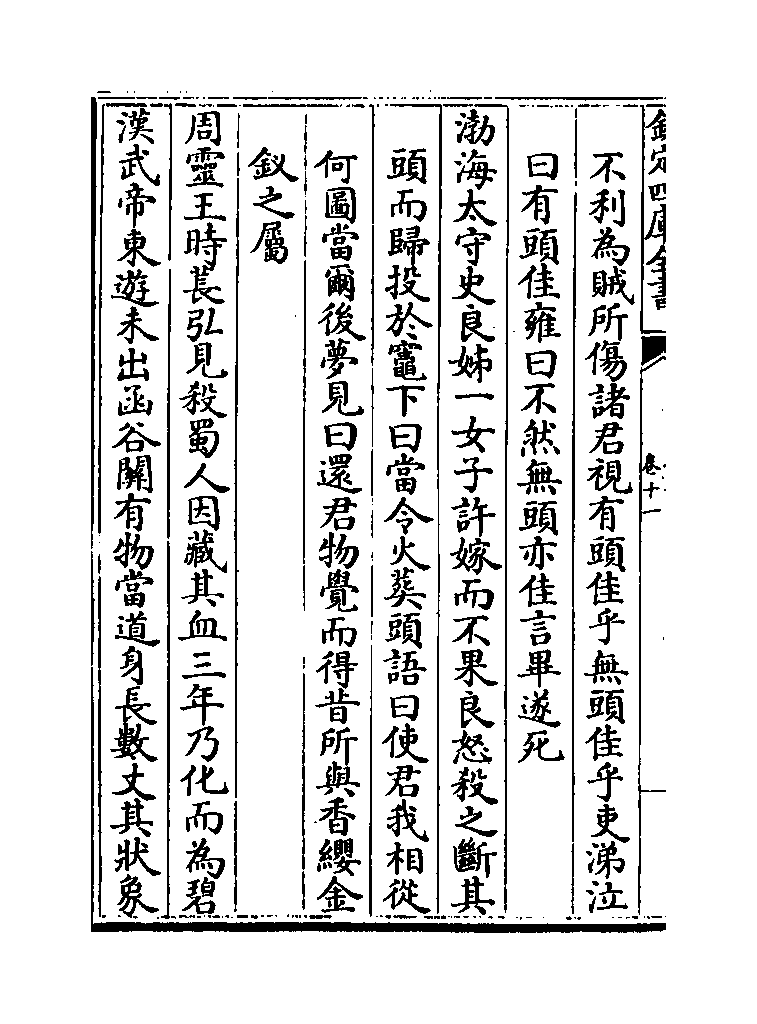 欽定四庫全書
卷十一
不利為賊所傷諸君視有頭佳乎無頭佳乎吏涕泣
曰有頭佳雍曰不然無頭亦佳言畢遂死
渤海太守史良姊一女子許嫁而不果良怒殺之斷其
頭而歸投於竈下曰當令火葬頭語曰使君我相從
何圖當爾後夢見曰還君物覺而得昔所與香纓金
釵之屬
周靈王時萇弘見殺蜀人因藏其血三年乃化而為碧
漢武帝東遊未出函谷關有物當道身長數丈其狀象